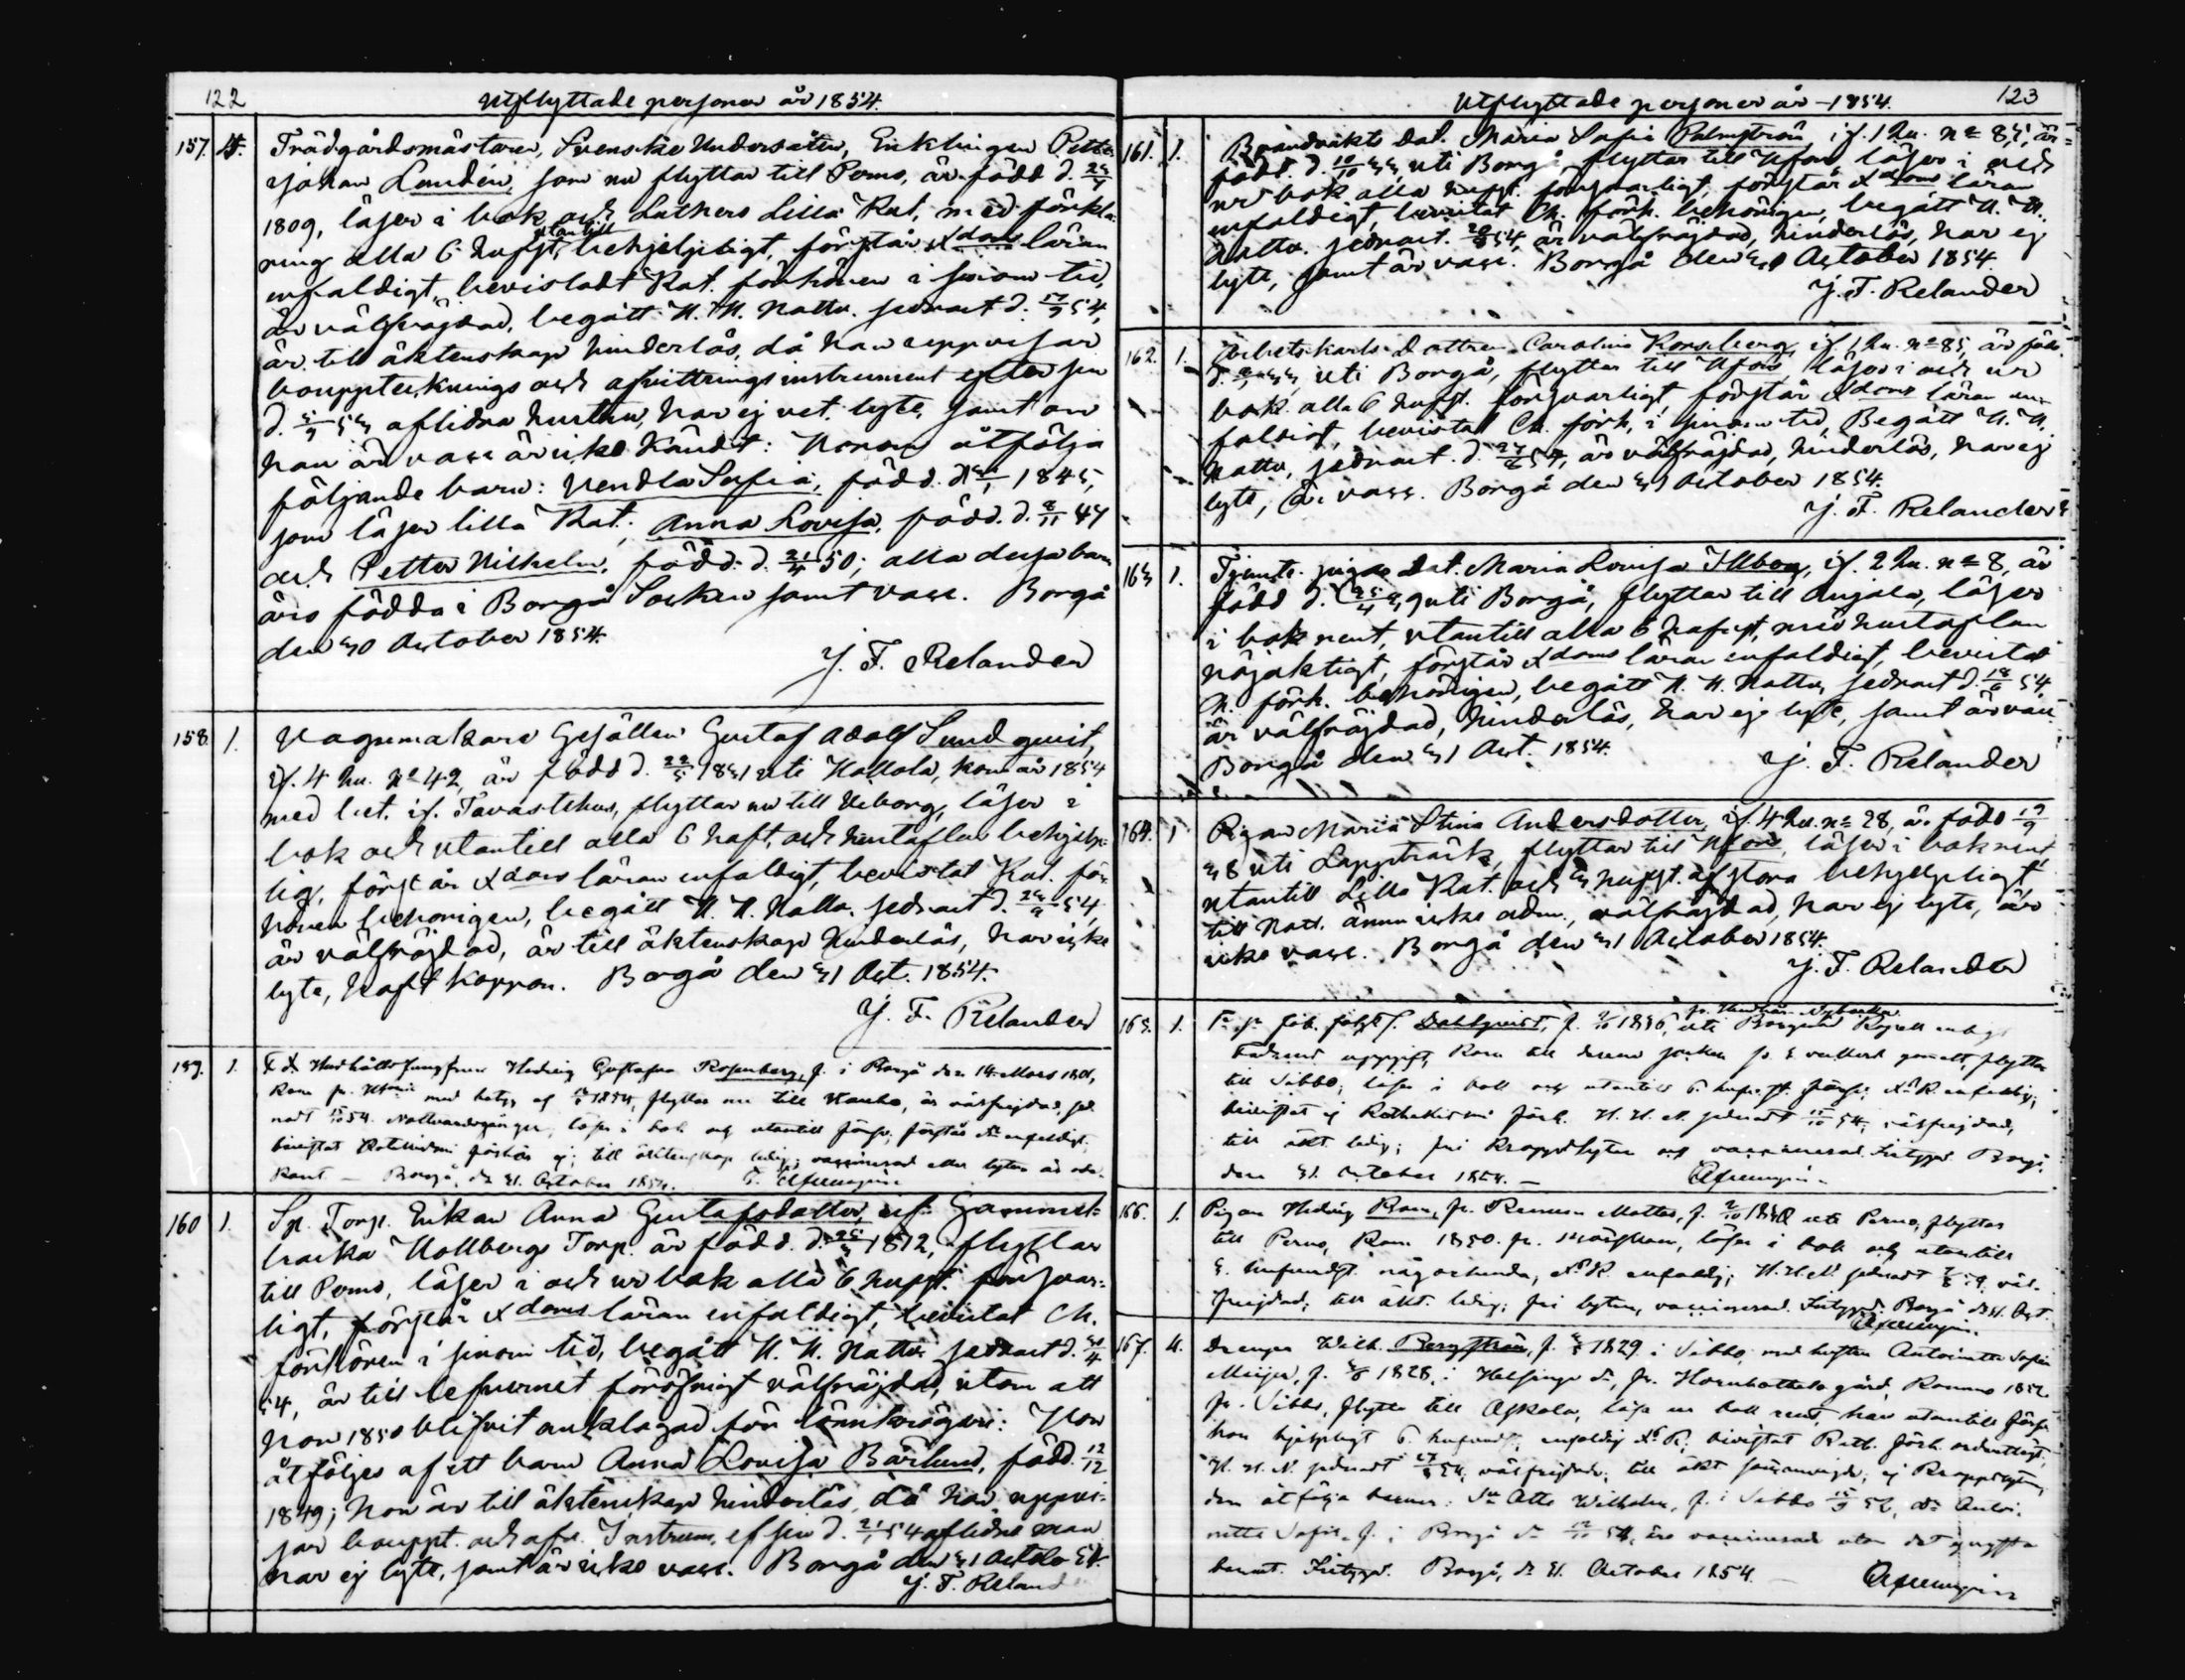 122
Utflyttade personer år 1854.
157. 4. Trädgårdsmästaren, Svenske Undersåten, Enklingen Petter
Johan Lundén, som nu flyttar till Perno, är född d.
1809, läser i bok och Luthers Lilla Kat. med förkla-
ring alla 6 hufst. utantill behjelpligt, förstår Xdoms läran
enfaldigt, bevistadt Kat. förhören i sinom tid,
är välfräjdad, begått H. H. Nattv. sednast d. 54,
är till äktenskap hinderlös, då han uppvisar
bouppteknings och afvittringsinstrument efter sin
d. aflidna hustru, har ej vet. lyte, samt om
han är vacc. är icke kändt: Honom åtfölja
följande barn: Vendla Sofia, född. d. 1845,
som läser lilla Kat. Anna Lovisa, född. d. 8/11 47
och Petter Wilhelm, född. d. 21/4 50; alla dessa barn
äro födda i Borgå Socken samt vacc. Borgå
den 30 October 1854.
J. F. Relander
158. 1. Vagnmakare Gesällen Gustaf Adolf Sundqvist,
if. 4 Qu. No 42, är född d. 22/5 1831 uti Hollola, kom år 1854
med bet. if. Tavastehus, flyttar nu till Viborg, läser i
bok och utantill alla 6 haft. och hustaflan behjelp-
lig, förstår Xdoms läran enfaldigt, bevistat Kat. för-
hören behörigen, begått H. H. Nattv. sednast d. 54,
är välfräjdad, är till äktenskap hinderlös, har icke
lyte, haft koppor. Borgå den 31 Oct. 1854.
J. F. Relander
159. 1. Hushålls Jungfrun Hedvig Gustafva Rosenberg, f. i Borgå den 14 Mars
kom fr. med betyg af 1854, flyttar nu till är välfrejdad, sed-
nast 54 Nattvardsgången, läser i bok och utantill förstår enfaldigt,
bevistat förhör ej; till äktenskap ledig; vaccinerad eller lyten är obe-
kant — Borgå, d. 31. October 1854.
160 1. Sp. Torp. Enkan Anna Gustafsdotter, if. Gammel-
backa Hollbergs Torp. är född. d. 1812, flyttar
till Perno, läser i och ur bok alla 6 hufst. försvar-
ligt, förstår Xdoms läran enfaldigt, bevistat Ch.
förhören i sinom tid, begått H. H. Nattv. sednast d.
54, är till lefvernet för öfrigt välfräjdad, utom att
hon 1850 blifvit anklagad för lönnkrögeri: Hon
åtföljes af ett barn Anna Lovisa Bärlund, född. 12/12
1849; hon är till äktenskap hinderlös, då hon uppvi-
sar bouppt. och afv. Instrum. ef. sin d. 21/1 54 aflidne man
har ej lyte, samt är icke vacc. Borgå den 31 Octob. 54.
J. F. Reland
Utflyttade personer år 1854.
123
161. 1. Brandvakts dot. Maria Sofia Palmström, if. 1 Qu. No 83, är
född. d. 10/10 33, uti Borgå, flyttar till Hfors, läser i och
ur bok alla hufst. försvarligt, förstår Xdoms läran
enfaldigt, bevistat Ch. förh. behörigen, begått H. H.
Nattv. sednast. 54, är välfräjdad, hinderlös, har ej
lyte, samt är vacc. Borgå den 30 October 1854.
J. F. Relander
162. 1. Arbetskarls dottren Carolina Korsberg, if. 1 Qu. No 85, är född
d. 33, uti Borgå, flyttar till Hfors, läser i och ur
bok alla 6 hufst. försvarligt förstår Xdoms läran en-
faldigt, bevistat Ch. förh. i sinom tid, Begått H. H.
Nattv. sednast. d. 54, är välfräjdad, hinderlös, har ej
lyte, är vacc. Borgå den 31 October 1854.
J. F. Relander
163 1. Tjenste pigan dot. Maria Lovisa if. 2 Qu. No 8, är
född d. uti Borgå, flyttar till Anjala, läser
i bok rent, utantill alla 6 hufst. med hustaflan
nöjaktigt, förstår Xdoms läran enfaldigt, bevistat
Ch. förh. behörigen, begått H. H. Nattv. sednast d. 18/6 54,
är välfräjdad, hinderlös, har ej lyte, samt är vacc.
Borgå den 31 Oct. 1854.
J. F. Relander
164. 1 Pigan Maria Stina Andersdotter, if. 4 Qu. No 28, är född
38 uti Lappträsk, flyttar till Hfors, läser i bok rent,
utantill Lilla Kat. och 3 hufst. af stora behjelpligt,
till Nattv. ännu icke adm., välfräjdad, har ej lyte, är
icke vacc. Borgå den 31 October 1854.
J. F. Relander
165. 1. Dahlqvist, f. 1836, uti Borgå
uppgift, kom till denna socken flyttar
till Sibbo, läser i bok och utantill 6. hufvudst. enfaldig;
bevistat ej förh. H. H. N. sednast 54, välfrejdad,
till äkt. ledig; fri kroppslyten och vaccinerad. Borgå
den 31. October 1854. —
166. 1. Pigan Hedvig f. uti Perno, flyttar
till Perno, kom 1850. fr. läser i bok och utantill
hufvudst. någorlunda, enfaldig; H. H. N. sednast väl-
frejdad; till äkt. ledig; fri lyten, vaccinerad. Borgå d. 31. Oct.
167. 4. Drengen Wilh. Bergström, f. 1829 i Sibbo, med hustrun Antoinetta Sofia
f. 1828, i Helsinge fr. gård, kommo 1852
fr. Sibbo, flytta till Askola, läsa ur bok rent, han utantill
hon hjelpligt 6. hufvudst. enfaldig bevistat förh. ordentligt,
H. H. N. sednast 54, välfrejdade; till äkt sammanvigde; ej kroppslyten,
dem åtfölja barnen: Otto Wilhelm, f. i Sibbo 52, Antoi-
netta Sofia, f. i Borgå 54, äro vaccinerade utom det yngsta
barnet. Borgå, d. 31. October 1854.